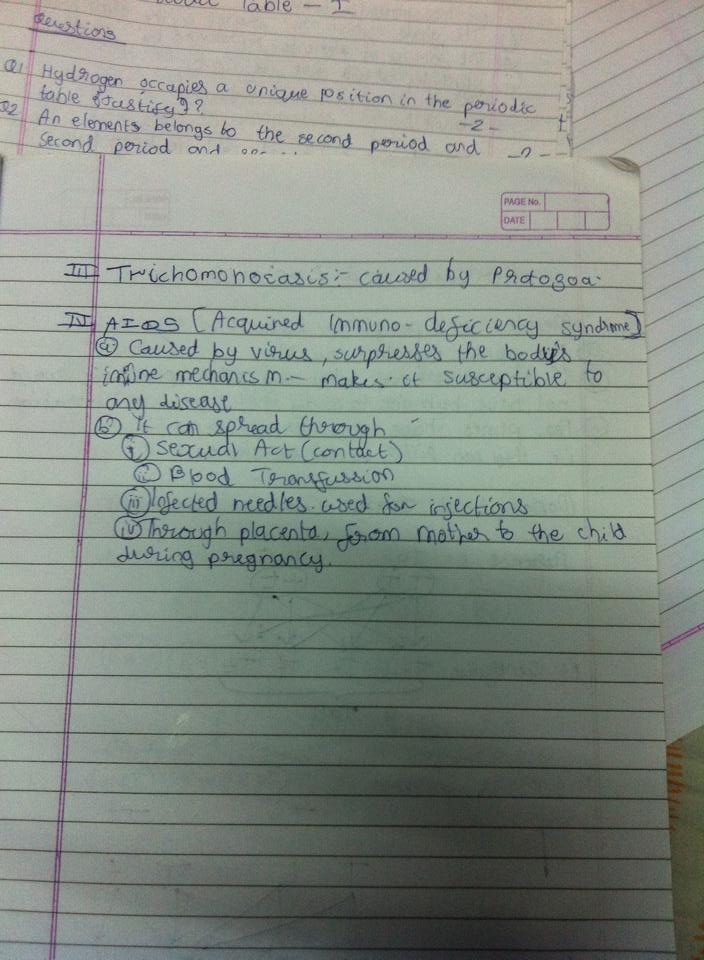 Table - I
Questions
Q1 Hydrogen occupies a unique position in the periodic
table {Justify}?
-2-
Q2 An elements belongs to the second period and
second period and
PAGE No.
DATE
III Trichomoniasis:- caused by Protozoa.
IV AIDS [Acquired Immuno-deficiency syndrome]
(a) Caused by virus, surpresses the body's
immune mechanism.- makes it susceptible to
any disease
(b) It can spread through -
(i) Sexual Act (contact)
(ii) Blood Transfussion
(iii) Infected needles used for injections
(iv) Through placenta, from mother to the child
during pregnancy.